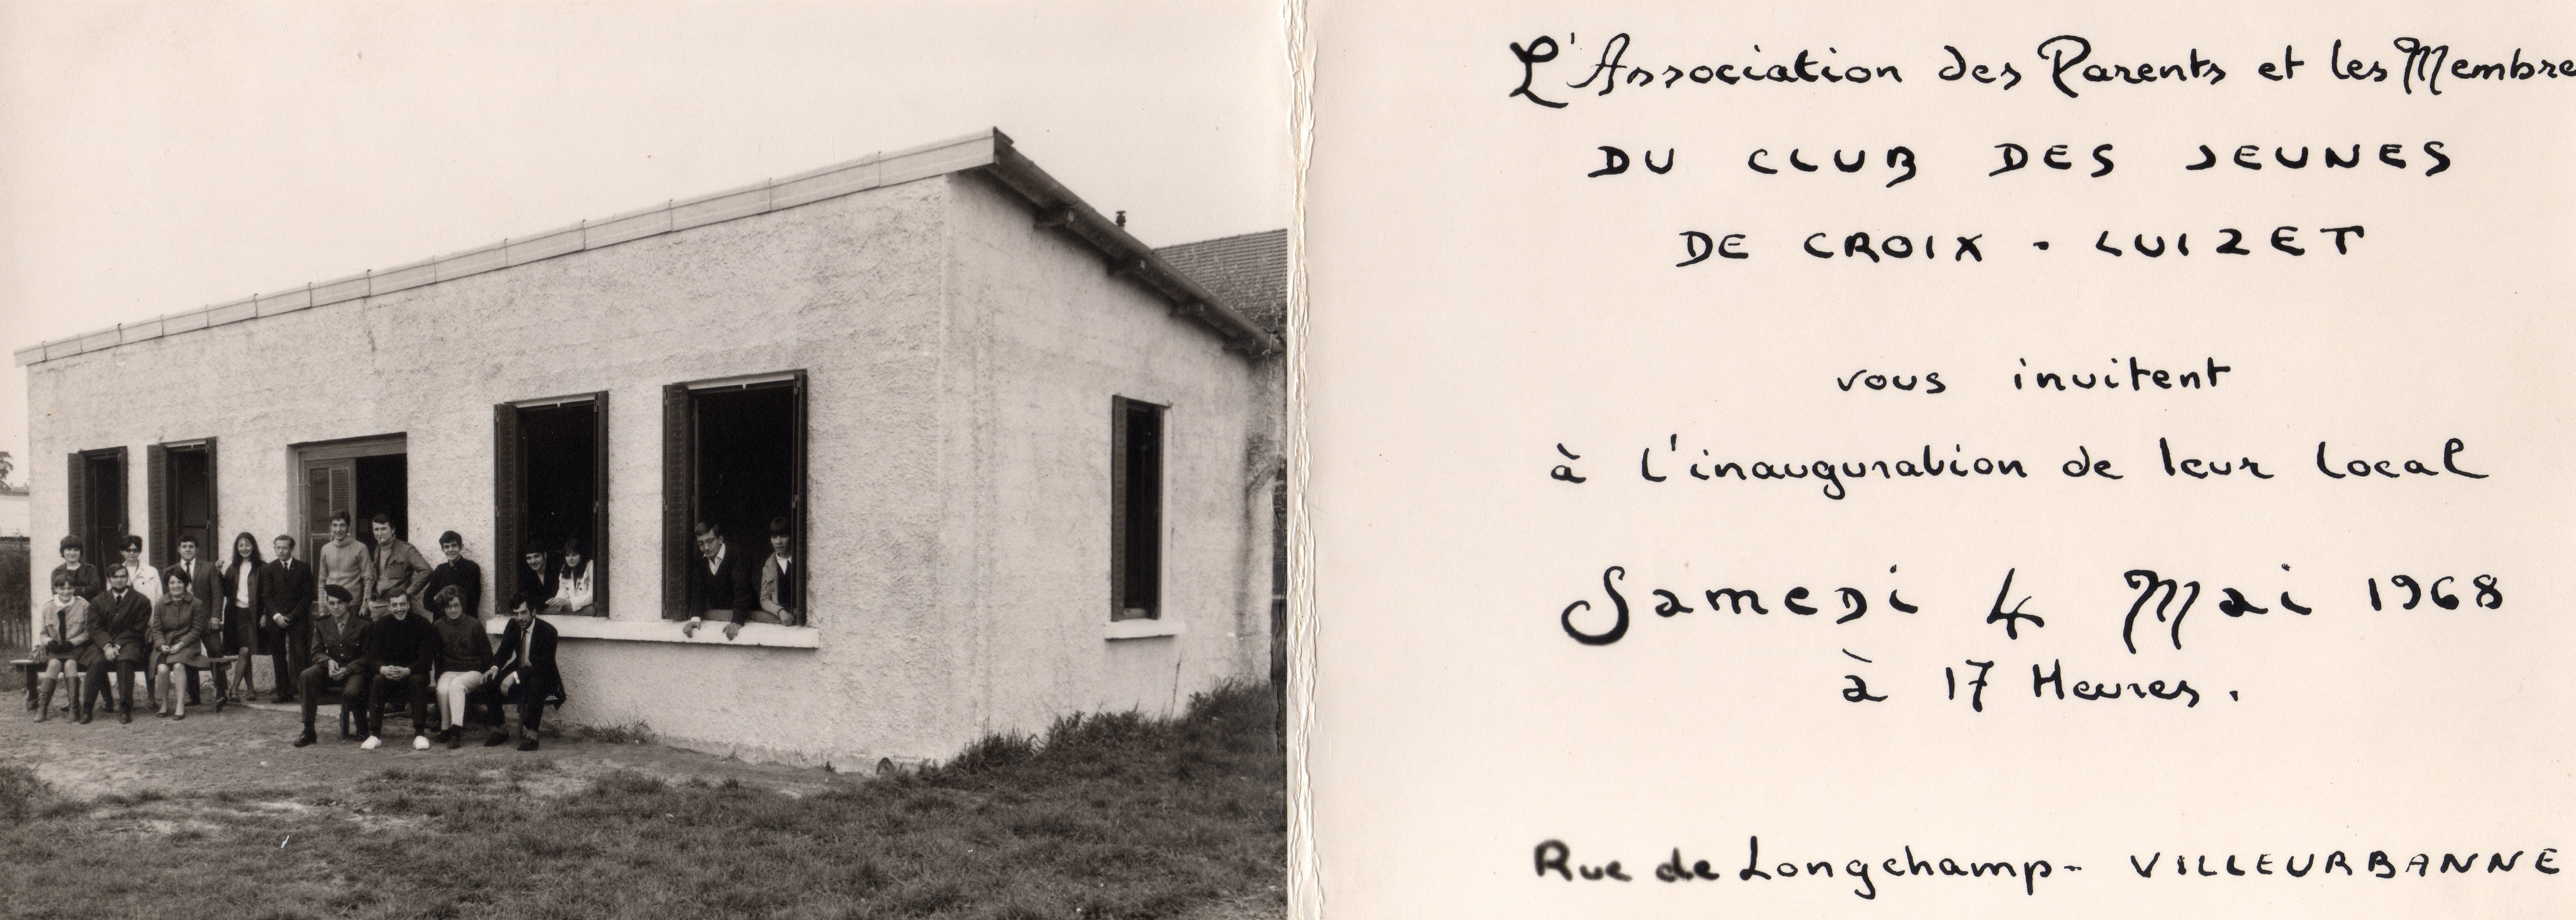 L'Association des Parents et les Membre
DU CLUB DES JEUNES
DE CROIX - LUIZET
vous invitent
à l'inauguration de leur local
Samedi 4 Mai 1968
à 17 Heures.
Rue de Longchamp - VILLEURBANNE